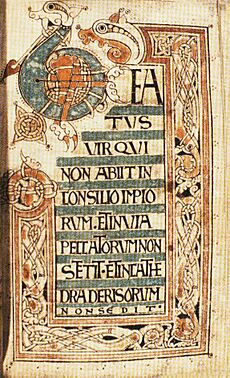 BEA
TUS
VIR QUI
NON ABIIT IN
CONSILIO IMPIO
RUM · ET IN VIA
PECCATORUM NON
STETIT · ET IN CATHE
DRA DERISORUM
NON SEDIT ·